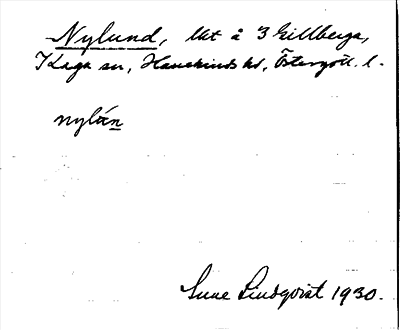 Nylund, lht å 3 Gillberga,
Kaga sn, Hanekinds hd, Östergötl. l.
nylán
Sune Lindqvist 1930.